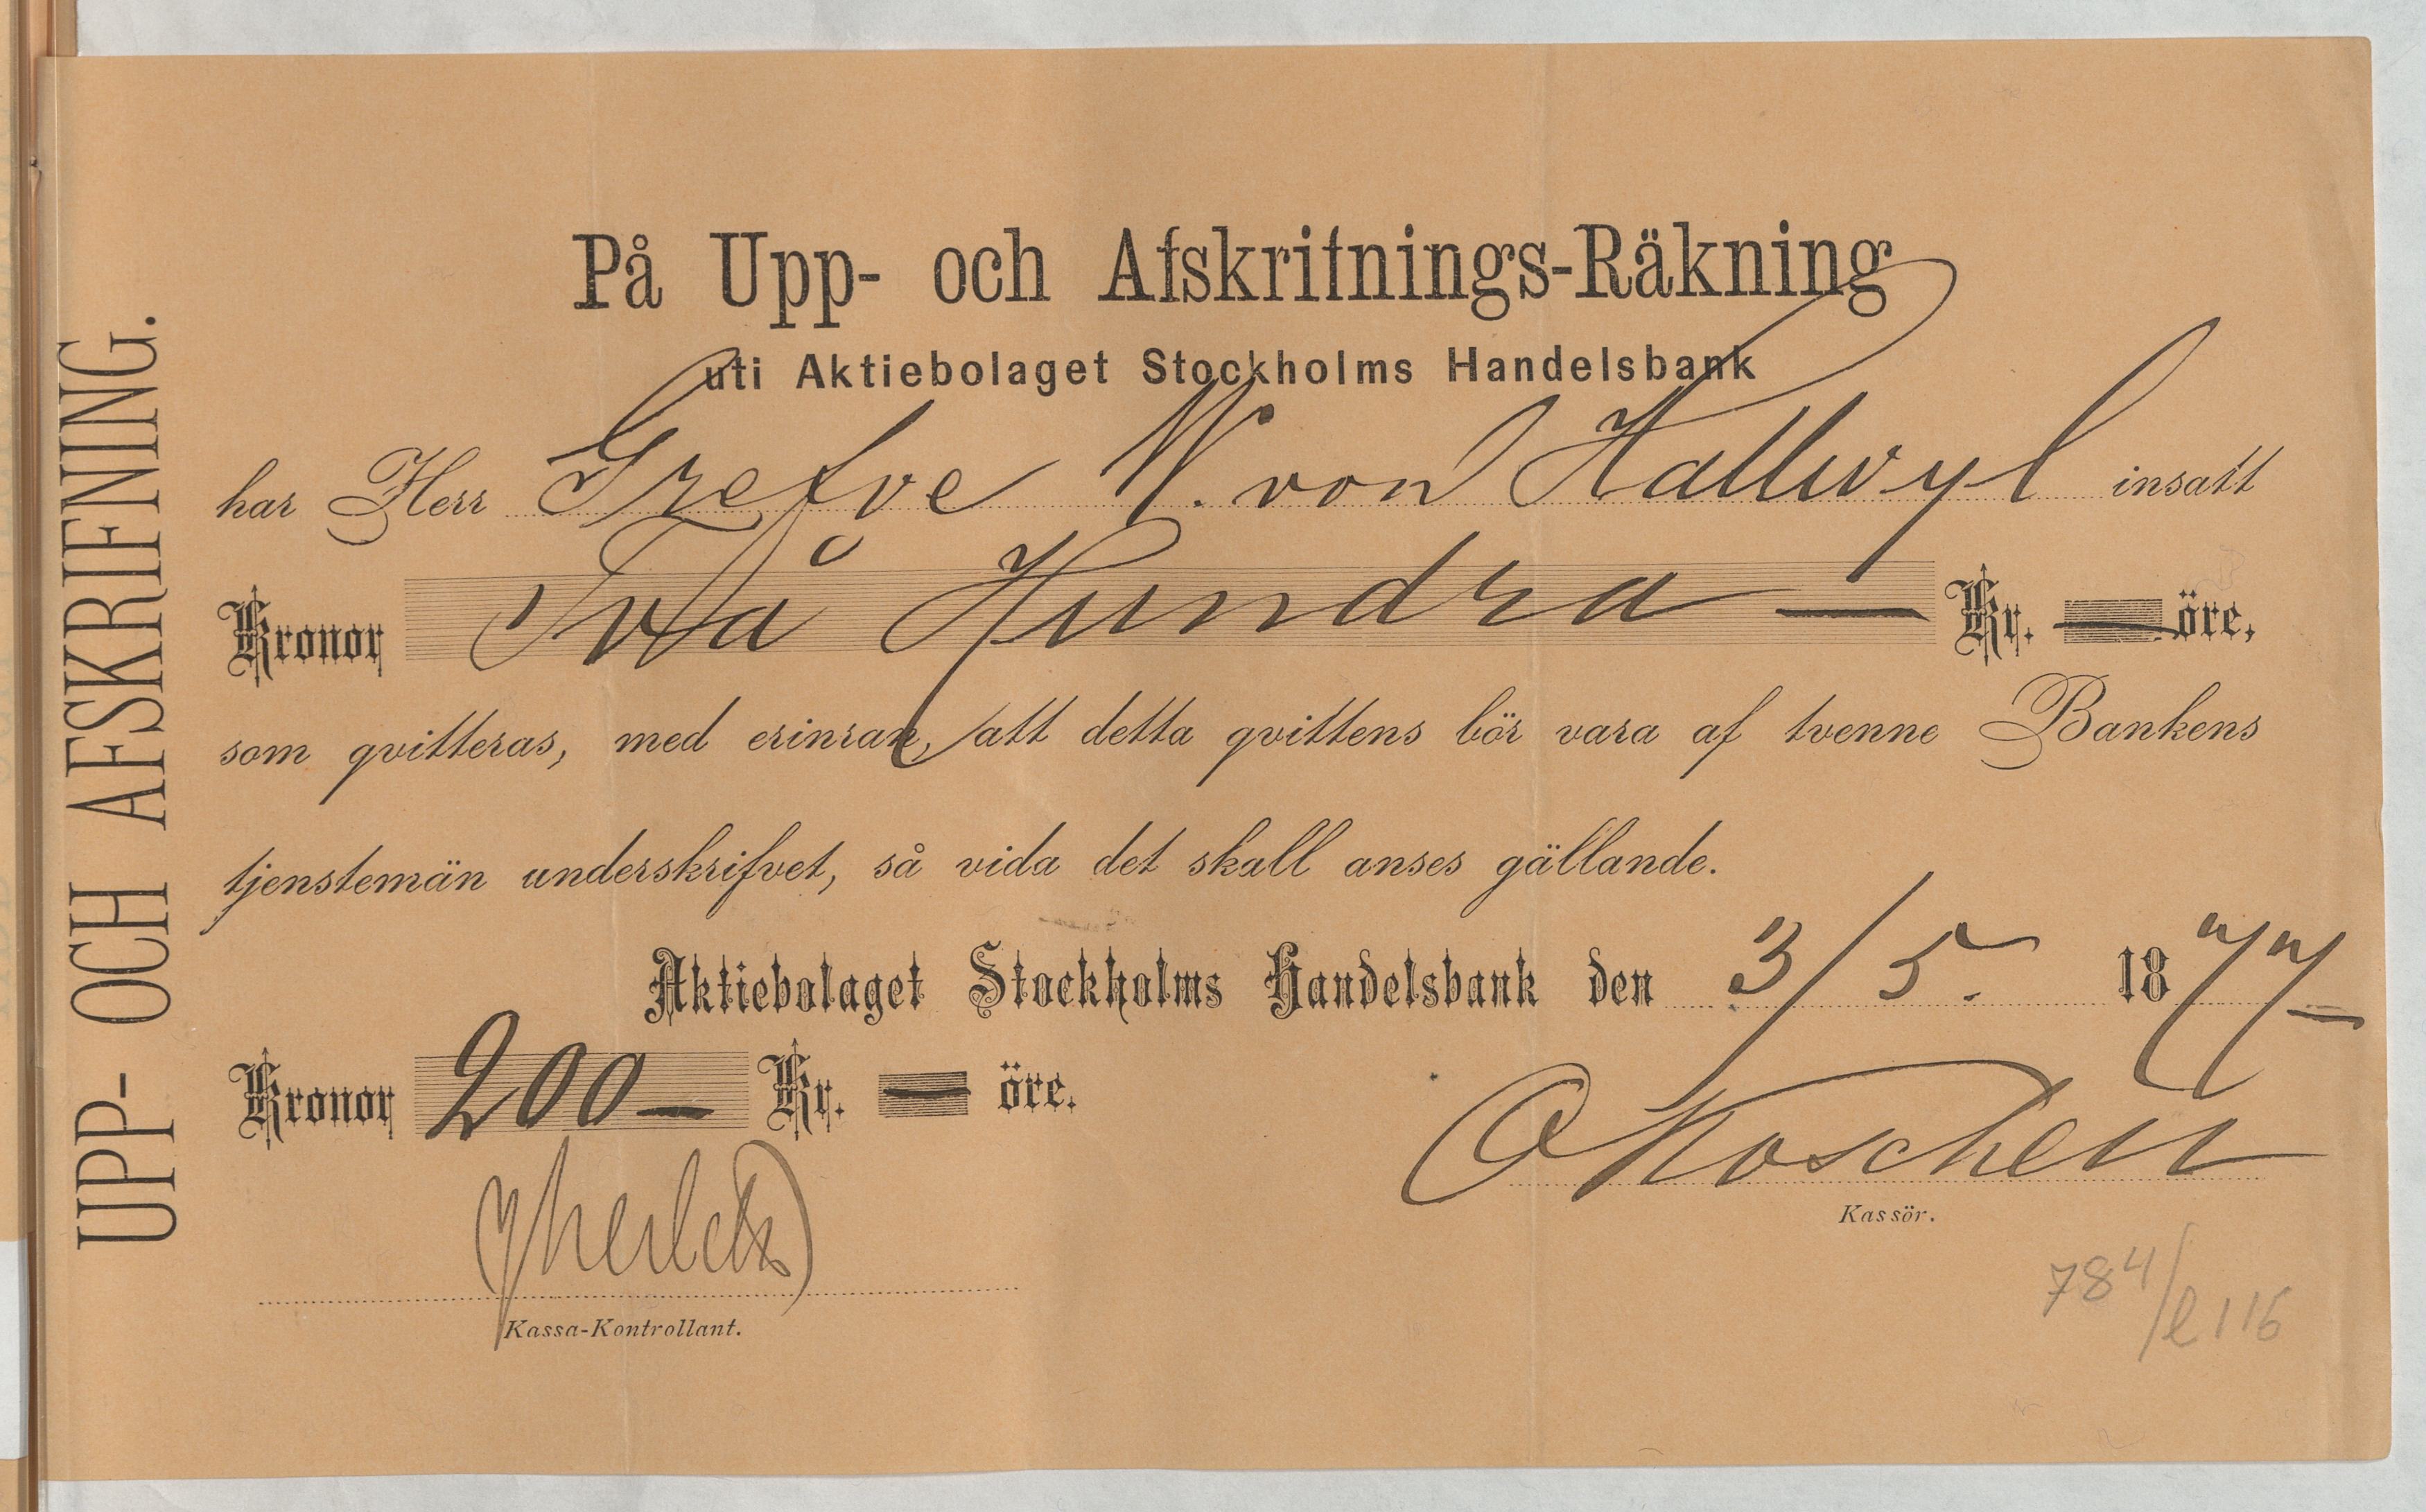 UPP- OCH AFSKRIFNING.
På Upp- och Afskrifnings-Räkning
uti Aktiebolaget Stockholms Handelsbank
har Herr Grefve W. von Hallwyl insatt
Kronor Två Hundra — Kr. — öre,
som qvitteras, med erinran, att detta qvittens bör vara af tvenne Bankens
tjenstemän underskrifvet, så vida det skall anses gällande.
Aktiebolaget Stockholms Handelsbank den 3/5. 1877
Kronor 200 — Kr. — öre.
Kassör.
Kassa-Kontrollant.
784/l 116